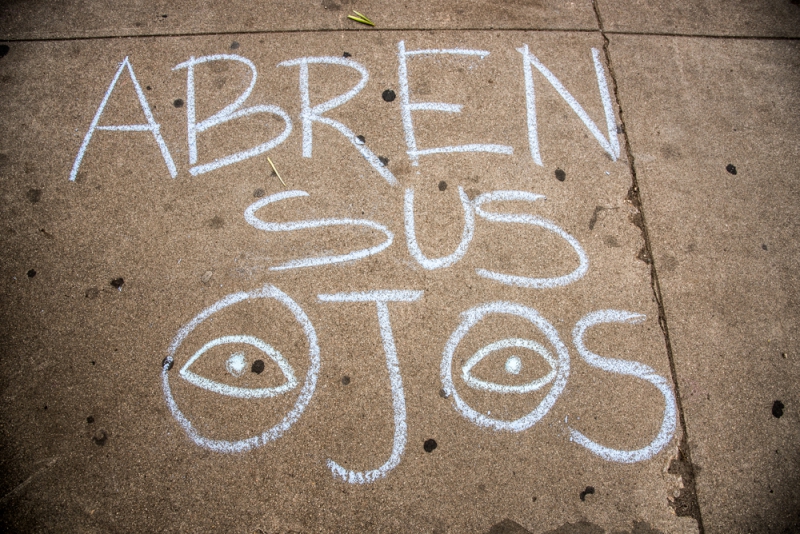 ABREN
SUS
OJOS